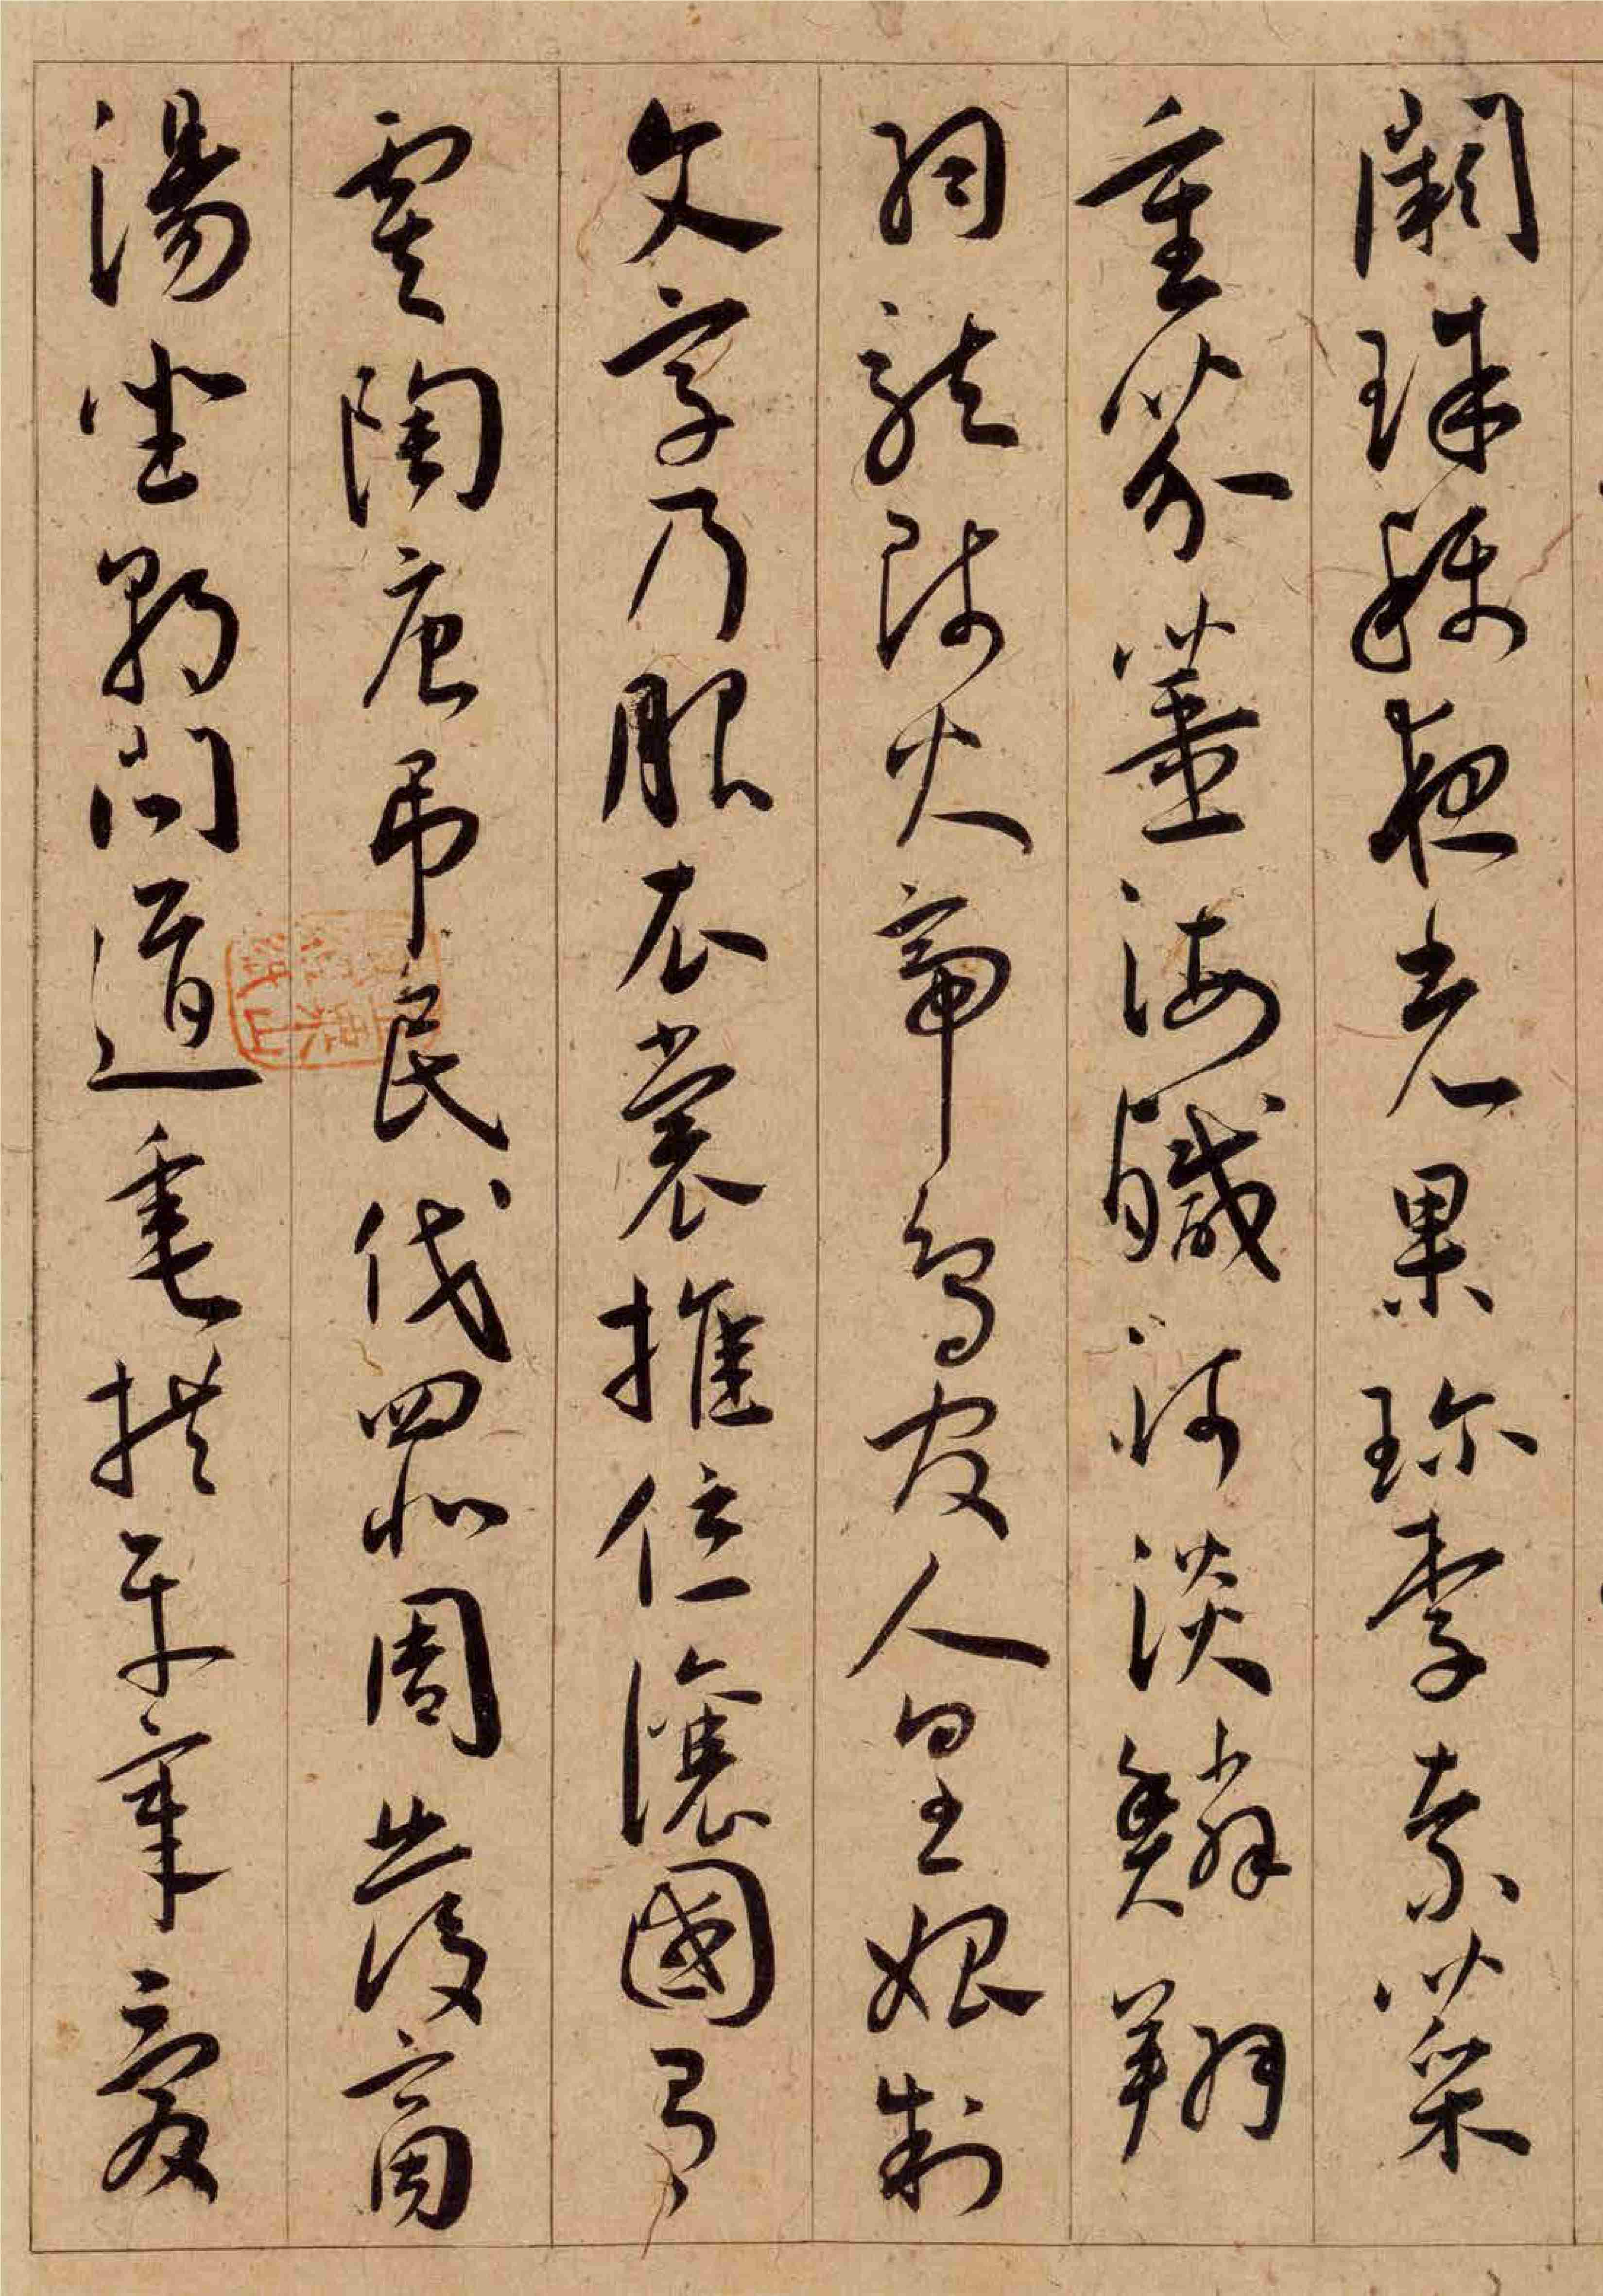 闕珠稱夜光果珍李柰菜
重芥薑海醎河淡鱗翔
羽龍師火帝鳥官人皇始制
文字乃服衣裳推位讓國有
虞陶唐弔民伐罪周發商
湯坐朝問道垂拱平章愛